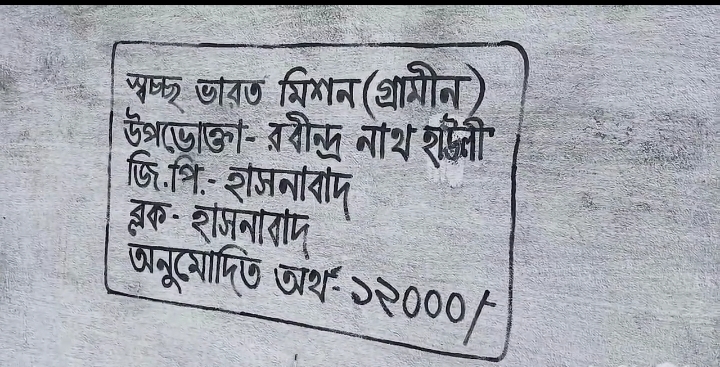 স্বচ্ছ ভারত মিশন (গ্রামীন)
উপভোক্তা- রবীন্দ্র নাথ
জি.পি.- হাসনাবাদ
ব্লক- হাসনাবাদ
অনুমোদিত অর্থ- ১২০০০/-